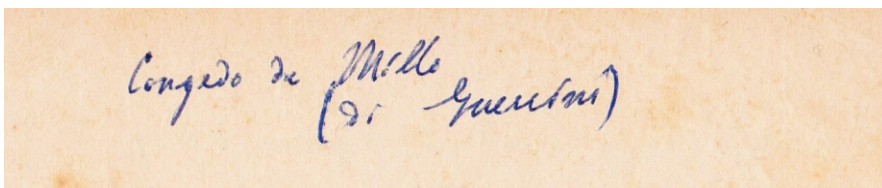 Congedo da Milla
(di Guerrini)